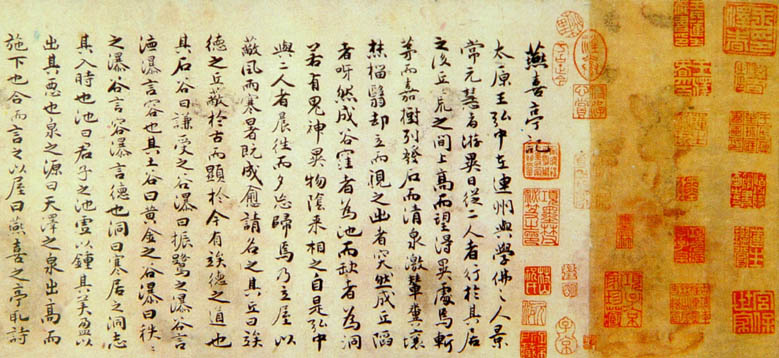 燕喜亭記
太原王弘中在連州與學佛〻人景
常元慧者游異日從二人者行於其居
之後丘荒之間上高而望得異處焉斬
茅而嘉樹列發石而清泉激輦糞壤
焚榴翳却立而視之出者突然成丘陷
者呀然成谷窪者為池而缺者為洞
若有鬼神異物陰来相之自是弘中
與二人者晨往而夕忘歸焉乃立屋以
蔽風雨寒暑既成愈請名之其丘曰竢
德之丘蔽於古而顯於今有竢德之道也
其石谷曰謙受之谷瀑曰振鷺之瀑谷言
德瀑言容也其土谷曰黃金之谷瀑曰秩〻
之瀑谷言容瀑言德也洞曰寒居之洞志
其入時也池曰君子之池虛以鍾其美盈以
出其惡也泉之源曰天澤之泉出高而
施下也合而言之以屋曰燕喜之亭取詩